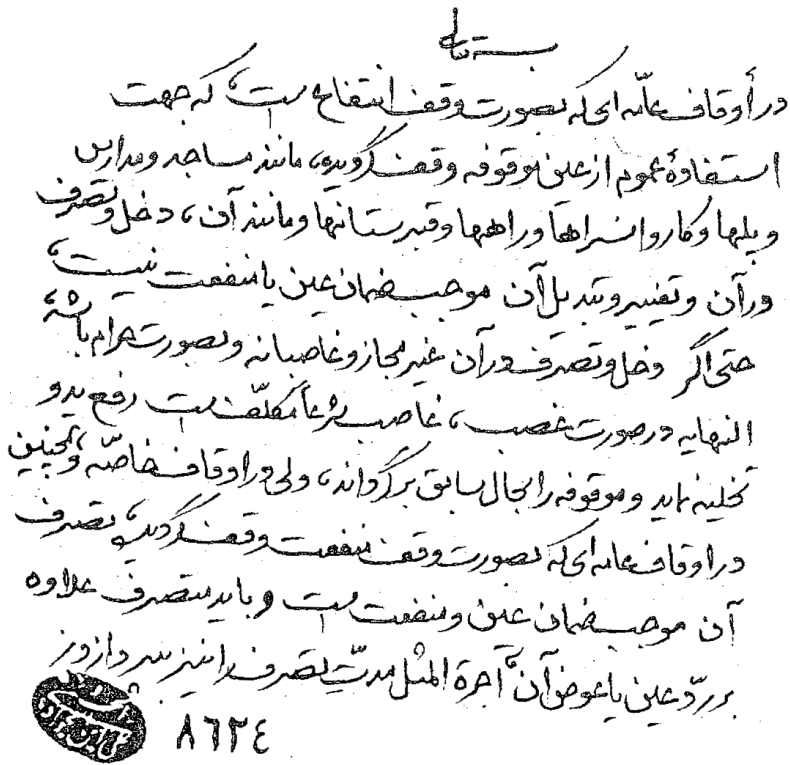 بسمه تعالی
در أوقاف عامّه ای که بصورت وقف انتفاع است، که جهت
استفادهٔ عموم از عین موقوفه وقف گردیده، مانند مساجد و مدارس
و پلها و کاروانسراها و راهها و قبرستانها و مانند آن، دخل و تصرف
در آن و تغییر و تبدیل آن موجب ضمان عین یا منفعت نیست،
حتی اگر دخل و تصرف در آن غیر مجاز و غاصبانه و بصورت حرام باشد،
النهایه در صورت غصب، غاصب شرعاً مکلّف است رفع ید و
تخلیه نماید و موقوفه را بحال سابق برگرداند، ولی در اوقاف خاصّه و همچنین
در اوقاف عامه ای که بصورت وقف منفعت وقف گردیده، تصرف
آن موجب ضمان عین و منفعت است و باید متصرف علاوه
بر ردّ عین یا عوض آن، اجرة المثل مدتِ تصرف را نیز بپردازد
٨٦٢٤